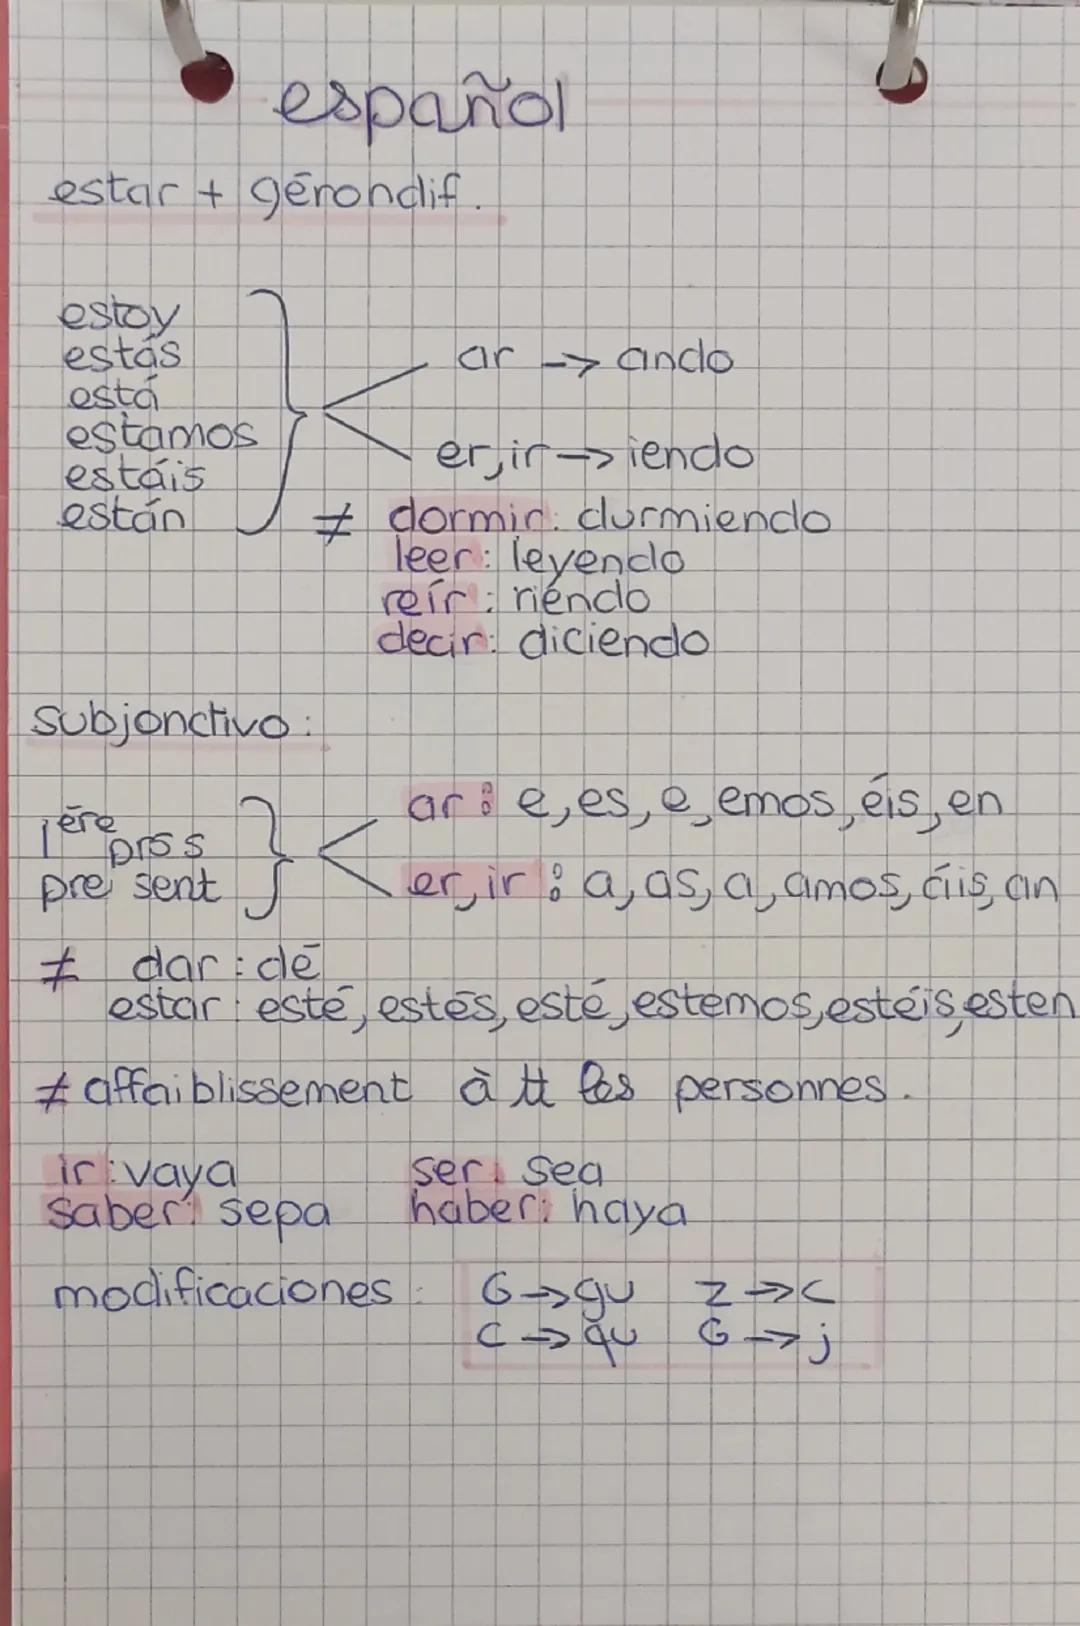 español
estar + gérondif.
estoy
estás
está
estamos
estáis
están
ar -> ando
er, ir -> iendo
≠ dormir: durmiendo
leer: leyendo
reír: riéndo
decir: diciendo
subjonctivo:
1ère pros
pre sent
ar: e, es, e, emos, éis, en
er, ir: a, as, a, amos, áis, an
≠ dar: dé
estar: esté, estés, esté, estemos, estéis, esten
≠ affaiblissement à tt les personnes.
ir: vaya ser: sea
saber: sepa haber: haya
modificaciones: G -> gu Z -> c
C -> qu G -> j